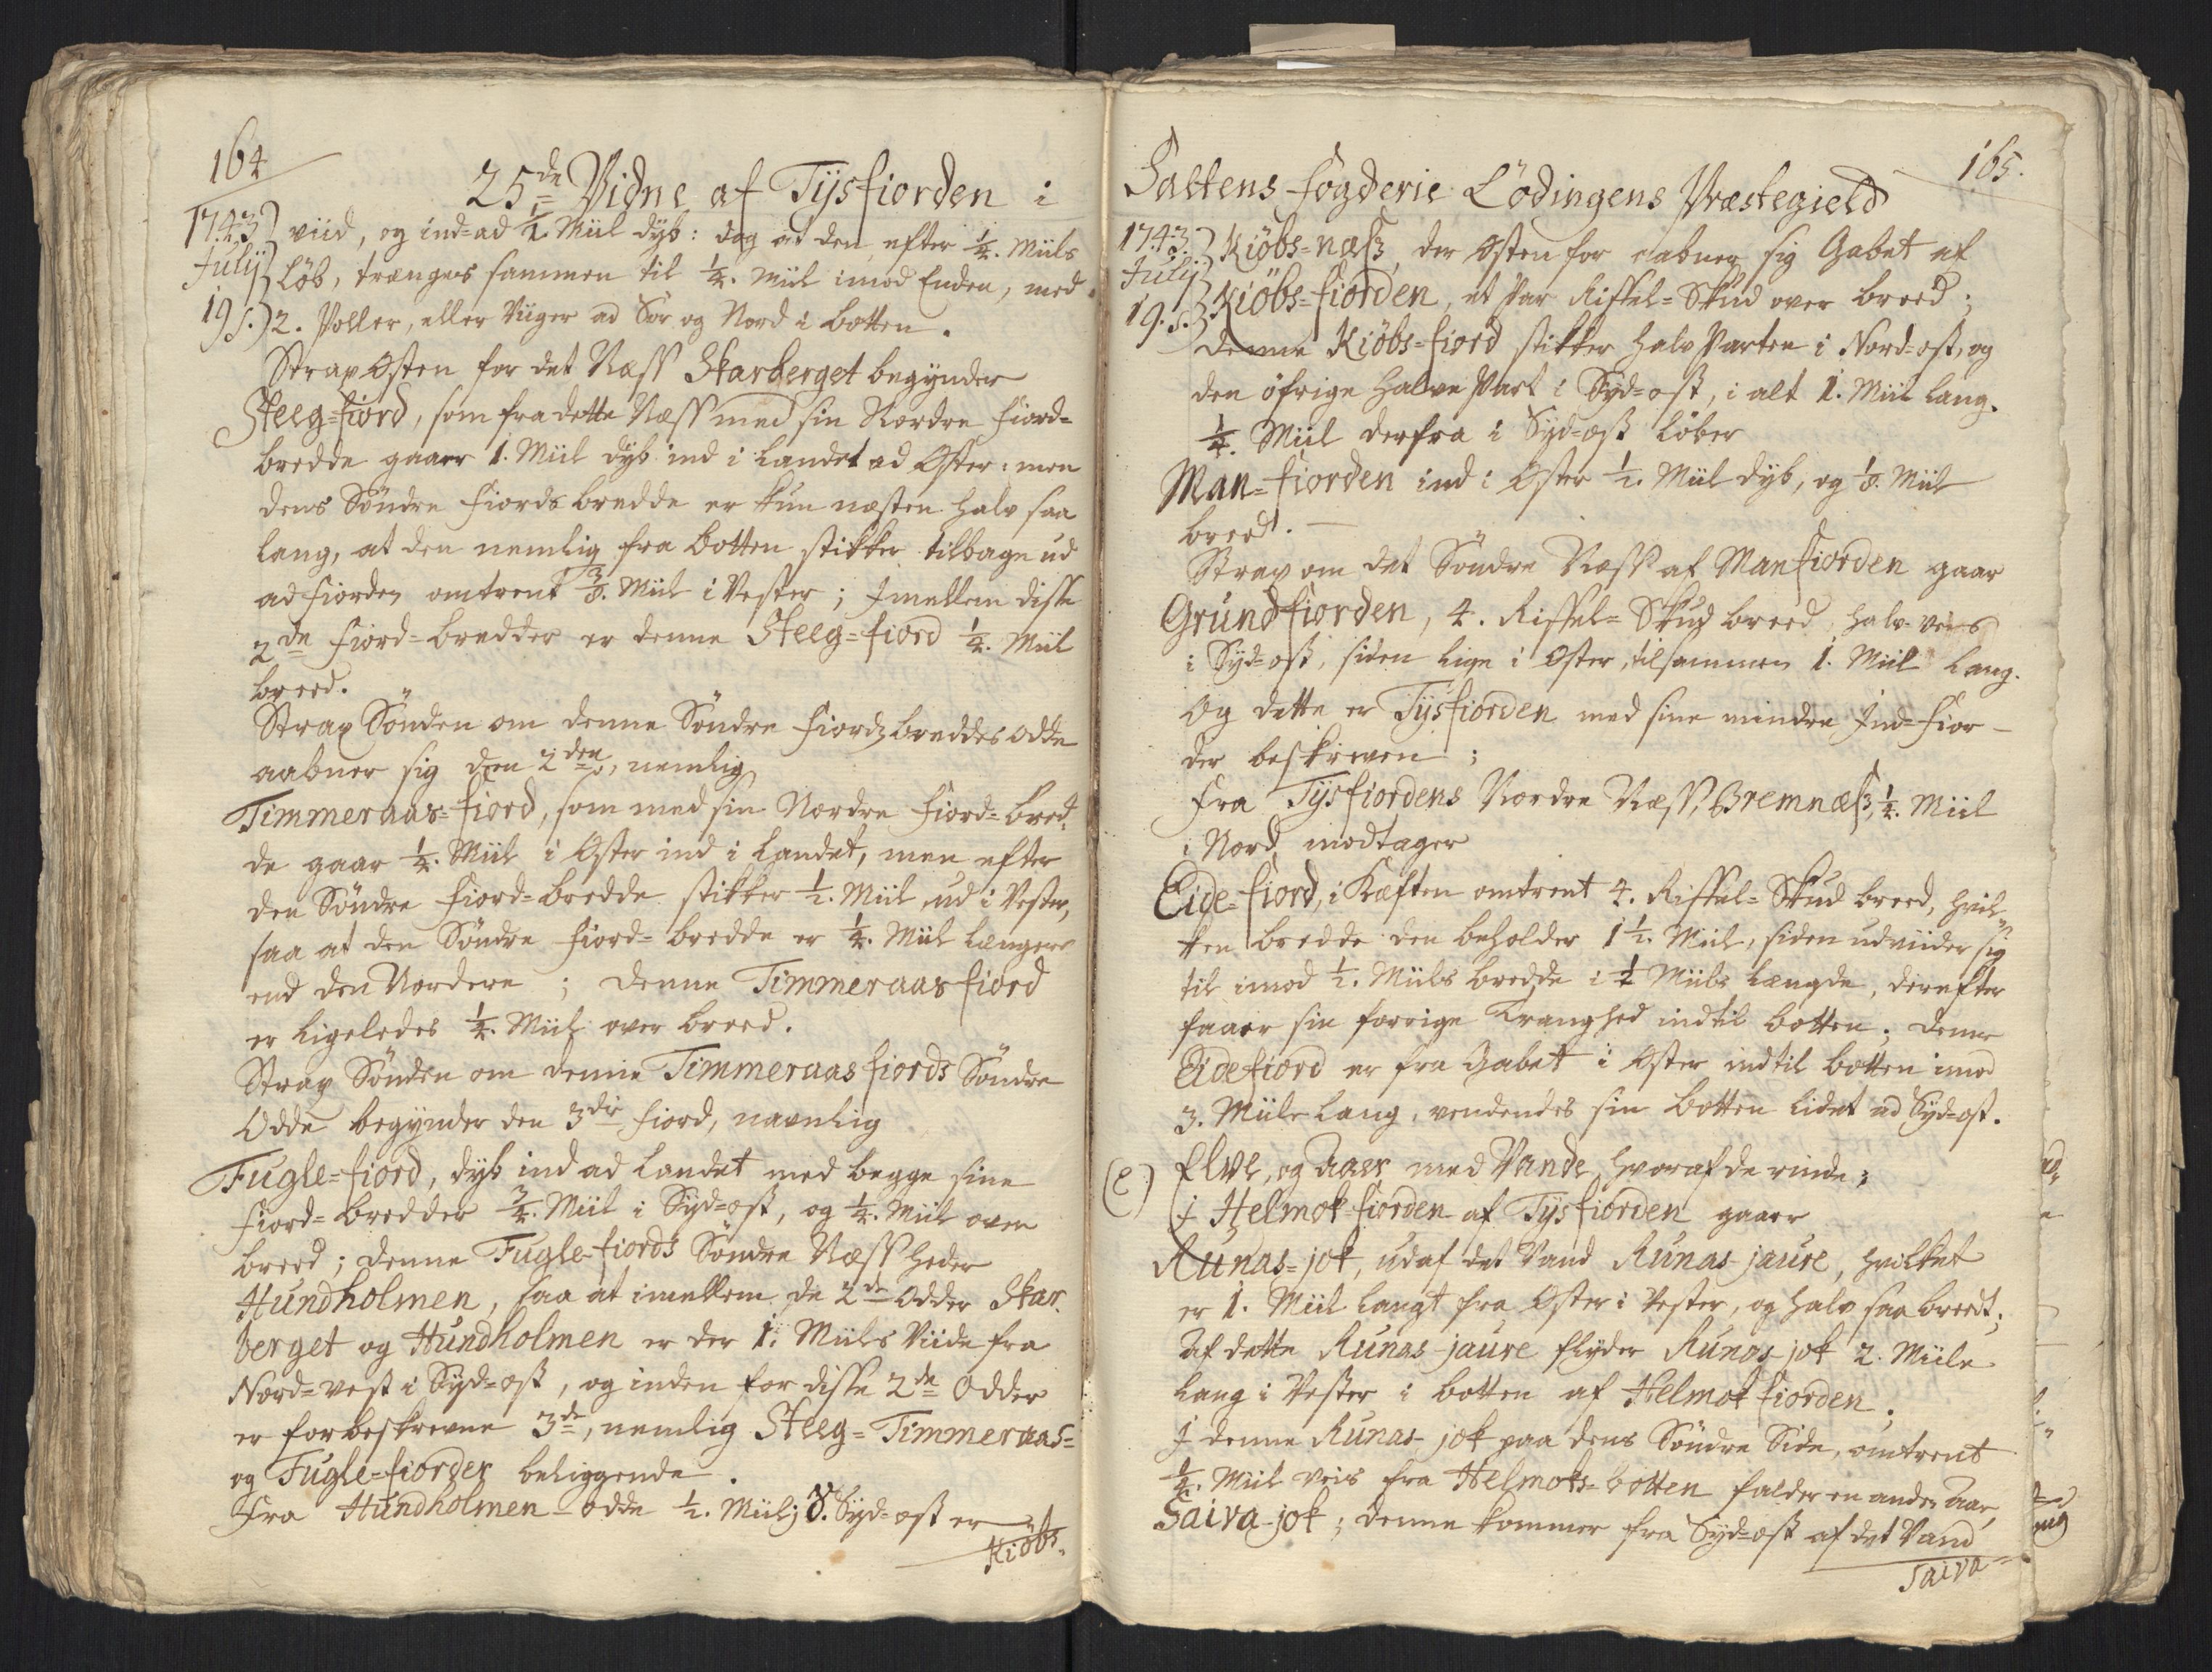 164
25de Vidne af Tysfiorden i
1743 July 19 s.
viid, og ind-ad 1/2 Miil dyb: dog at den efter 1/4. Miils
Løb, trænges sammen til 1/4. Miil imod Enden, med
2. Poller, eller Viiger ad Sør og Nord i Botten.
Strax Østen for det Næss Skarberget begynder
Steeg-fiord, som fra dette Næss med sin Nordre Fiord-
bredde gaaer 1. Miil dyb ind i Landet ad Øster: men
dens Søndre Fiords bredde er kun næsten halv saa
lang, at den nemlig fra Botten stikker tilbage ud
ad Fiorden omtrent 3/8. Miil i Vester; Imellem disse
2de Fiord-bredder er denne Steeg-fiord 1/4. Miil
breed.
Strax Sønden om denne Søndre Fiords breddes Odde
aabner sig den 2den, nemlig
Timmeraas-fiord, som med sin Nordre Fiord-bred-
de gaar 1/4. Miil i Øster ind i Landet, men efter
den Søndre Fiord-bredde stikker 1/2. Miil ud i Vester,
saa at den Søndre Fiord-bredde er 1/4. Miil længere
end den Nordere; denne Timmeraas fiord
er ligeledes 1/4. Miil over breed.
Strax Sønden om denne Timmeraas fiords Søndre
Odde begynder den 3die Fiord, navnlig
Fugle-fiord, dyb ind ad Landet med begge sine
Fiord-bredder 3/4. Miil i Syd-ost, og 1/4. Miil over
breed; denne Fugle-fiords Søndre Næss heder
Hundholmen, saa at imellem de 2de Odder Skar-
berget og Hundholmen er der 1. Miils Viide fra
Nord-vest i Syd-ost, og inden for disse 2de Odder
er forbeskrevne 3de, nemlig Steeg- Timmeraas-
og Fugle-fiorder beliggende.
Fra Hundholmen-odde 1/2. Miil i Syd-ost er
Kiöbs-
165.
Saltens Fogderie Lödingens Præstegield
1743. July 19. s.
Kiöbs-næss, der Østen for aabner sig Gabet af
Kiöbs-fiorden, et Par Riffel-Skud over breed;
denne Kiöbs-fiord stikker halv Parten i Nord-ost, og
den øfrige halve Part i Syd-ost, i alt 1. Miil lang.
1/4. Miil derfra i Syd-ost løber
Man-fiorden ind i Øster 1/2. Miil dyb, og 1/8. Miil
breed.
Strax om det Søndre Næss af Manfiorden gaar
Grundfiorden, 4. Riffel-Skud breed, halv-veis
i Syd-ost, siden lige i Øster, tilsammen 1. Miil lang.
Og dette er Tysfiorden med sine mindre Ind-Fior-
der beskreven;
Fra Tysfiordens Nordre Næss, Bremnæss, 1/4. Miil
i Nord modtager
Eide-fiord, i Kæften omtrent 4. Riffel-Skud breed, hvil-
ken bredde den beholder 1 1/2. Miil, siden udviider sig
til imod 1/2. Miils bredde i 1/2 Miils Længde, derefter
faaer sin forrige Tranghed indtil Botten; denne
Eidefiord er fra Gabet i Øster indtil Botten imod
3. Miile lang, vendendes sin Botten lidet ad Syd-ost.
(e) Elve, og Aaer med Vande, hvoraf de rinde;
i Helmok-fiorden af Tysfiorden gaaer
Runas-jok, ud af det Vand Runas-jaure, hvilket
er 1. Miil langt fra Øster i Vester, og halv saa breedt;
Af dette Runas-jaure flyder Runas-jok 2. Miile
lang i Vester i botten af Helmok fiorden.
I denne Runas-jok paa dens Søndre Side, omtrent
1/4. Miil veis fra Helmoks-botten falder en anden Aae,
Saiva-jok; denne kommer fra Syd-ost af det Vand
Saiva-